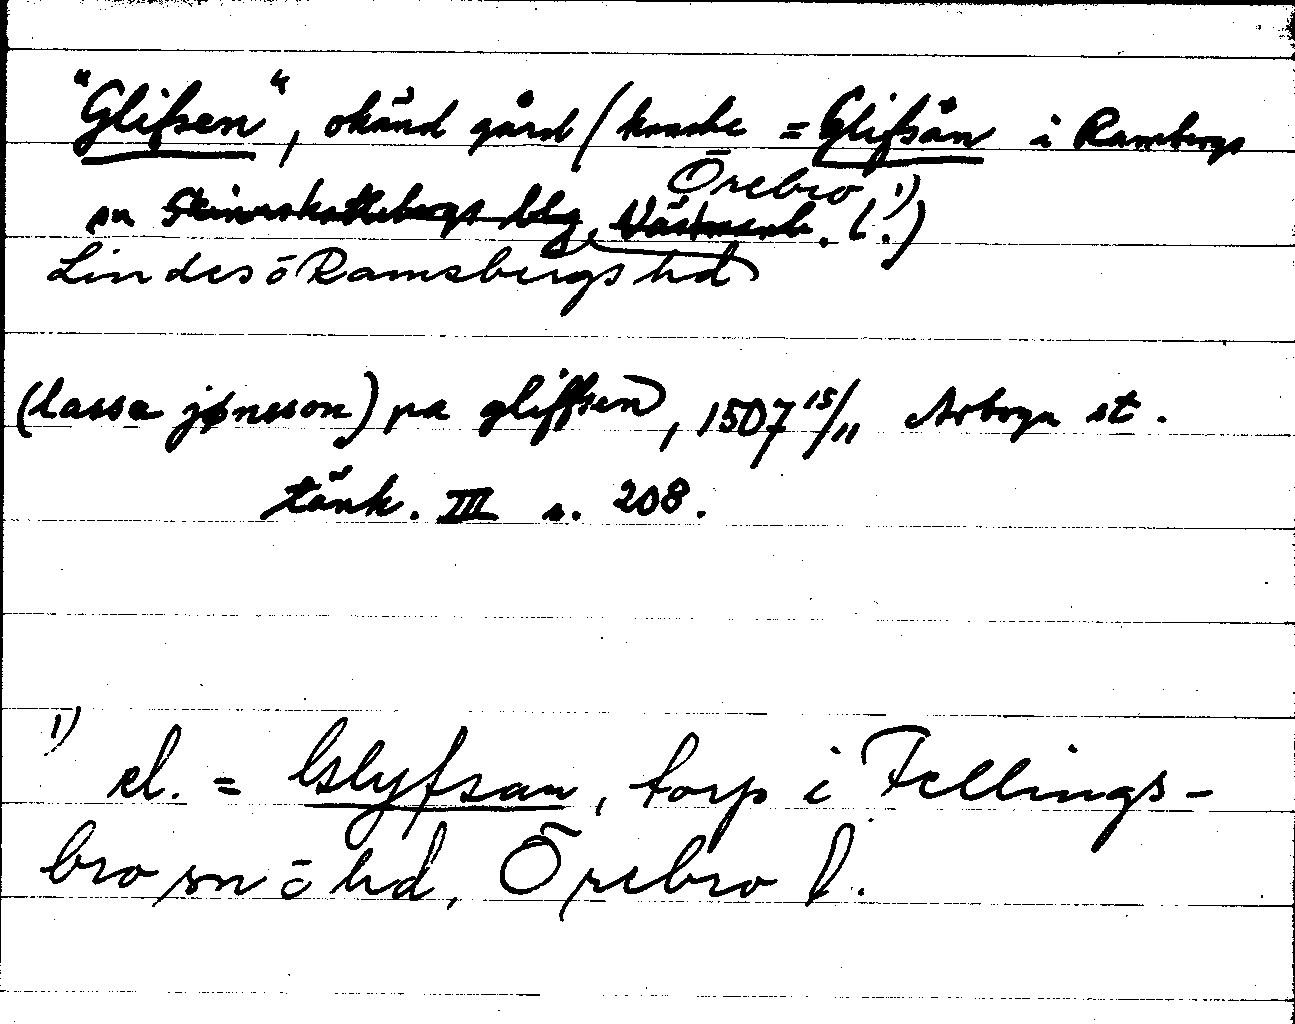 "Glifsen", okänd gård (kanske = Glifsån i Rambergs
Örebro 1)
sn Skinnskattebergs blg, Västmanl. l.)
Lindes ö Ramsbergs hd
(lassa jønsson) pa gliffsen, 1507 15/11 Arboga st.
tänk. III s. 208.
1) el. = Glyfsan, torp i Fellings-
bro sn ö hd, Örebro l.